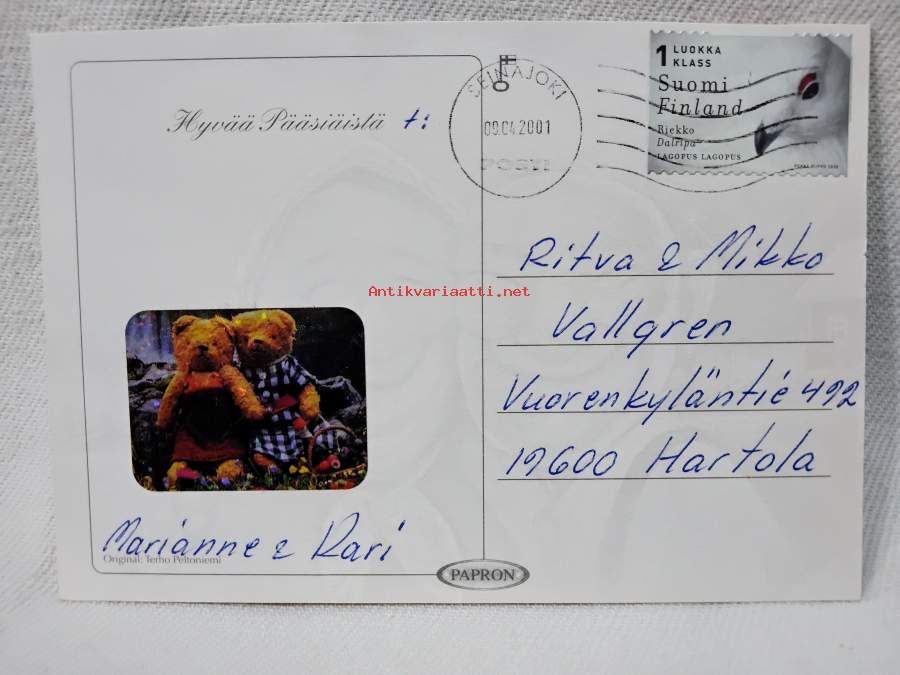 Hyvää Pääsiäistä t:
SEINÄJOKI
09.04.2001
POSTI
1 LUOKKA
KLASS
Suomi
Finland
Riekko
Dalripa
LAGOPUS LAGOPUS
Ritva & Mikko
Antikvariaatti.net
Vallgren
Vuorenkyläntie 492
19600 Hartola
Marianne & Kari
Original: Terho Peltoniemi
PAPRON